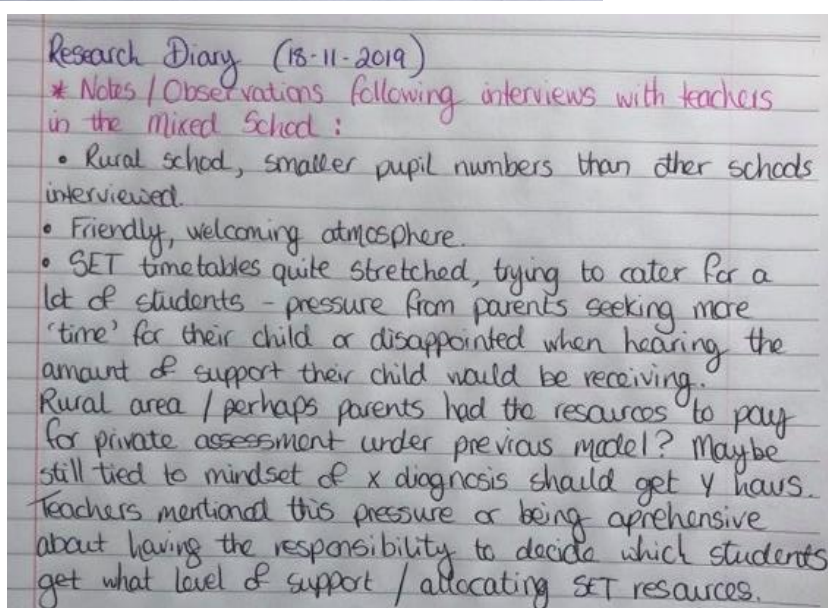 Research Diary (18-11-2019)
* Notes / Observations following interviews with teachers
in the Mixed School :
• Rural school, smaller pupil numbers than other schools
interviewed.
• Friendly, welcoming atmosphere.
• SET timetables quite stretched, trying to cater for a
lot of students - pressure from parents seeking more
'time' for their child or disappointed when hearing the
amount of support their child would be receiving.
Rural area / perhaps parents had the resources to pay
for private assessment under previous model? Maybe
still tied to mindset of x diagnosis should get y hours.
Teachers mentioned this pressure or being aprehensive
about having the responsibility to decide which students
get what level of support / allocating SET resources.